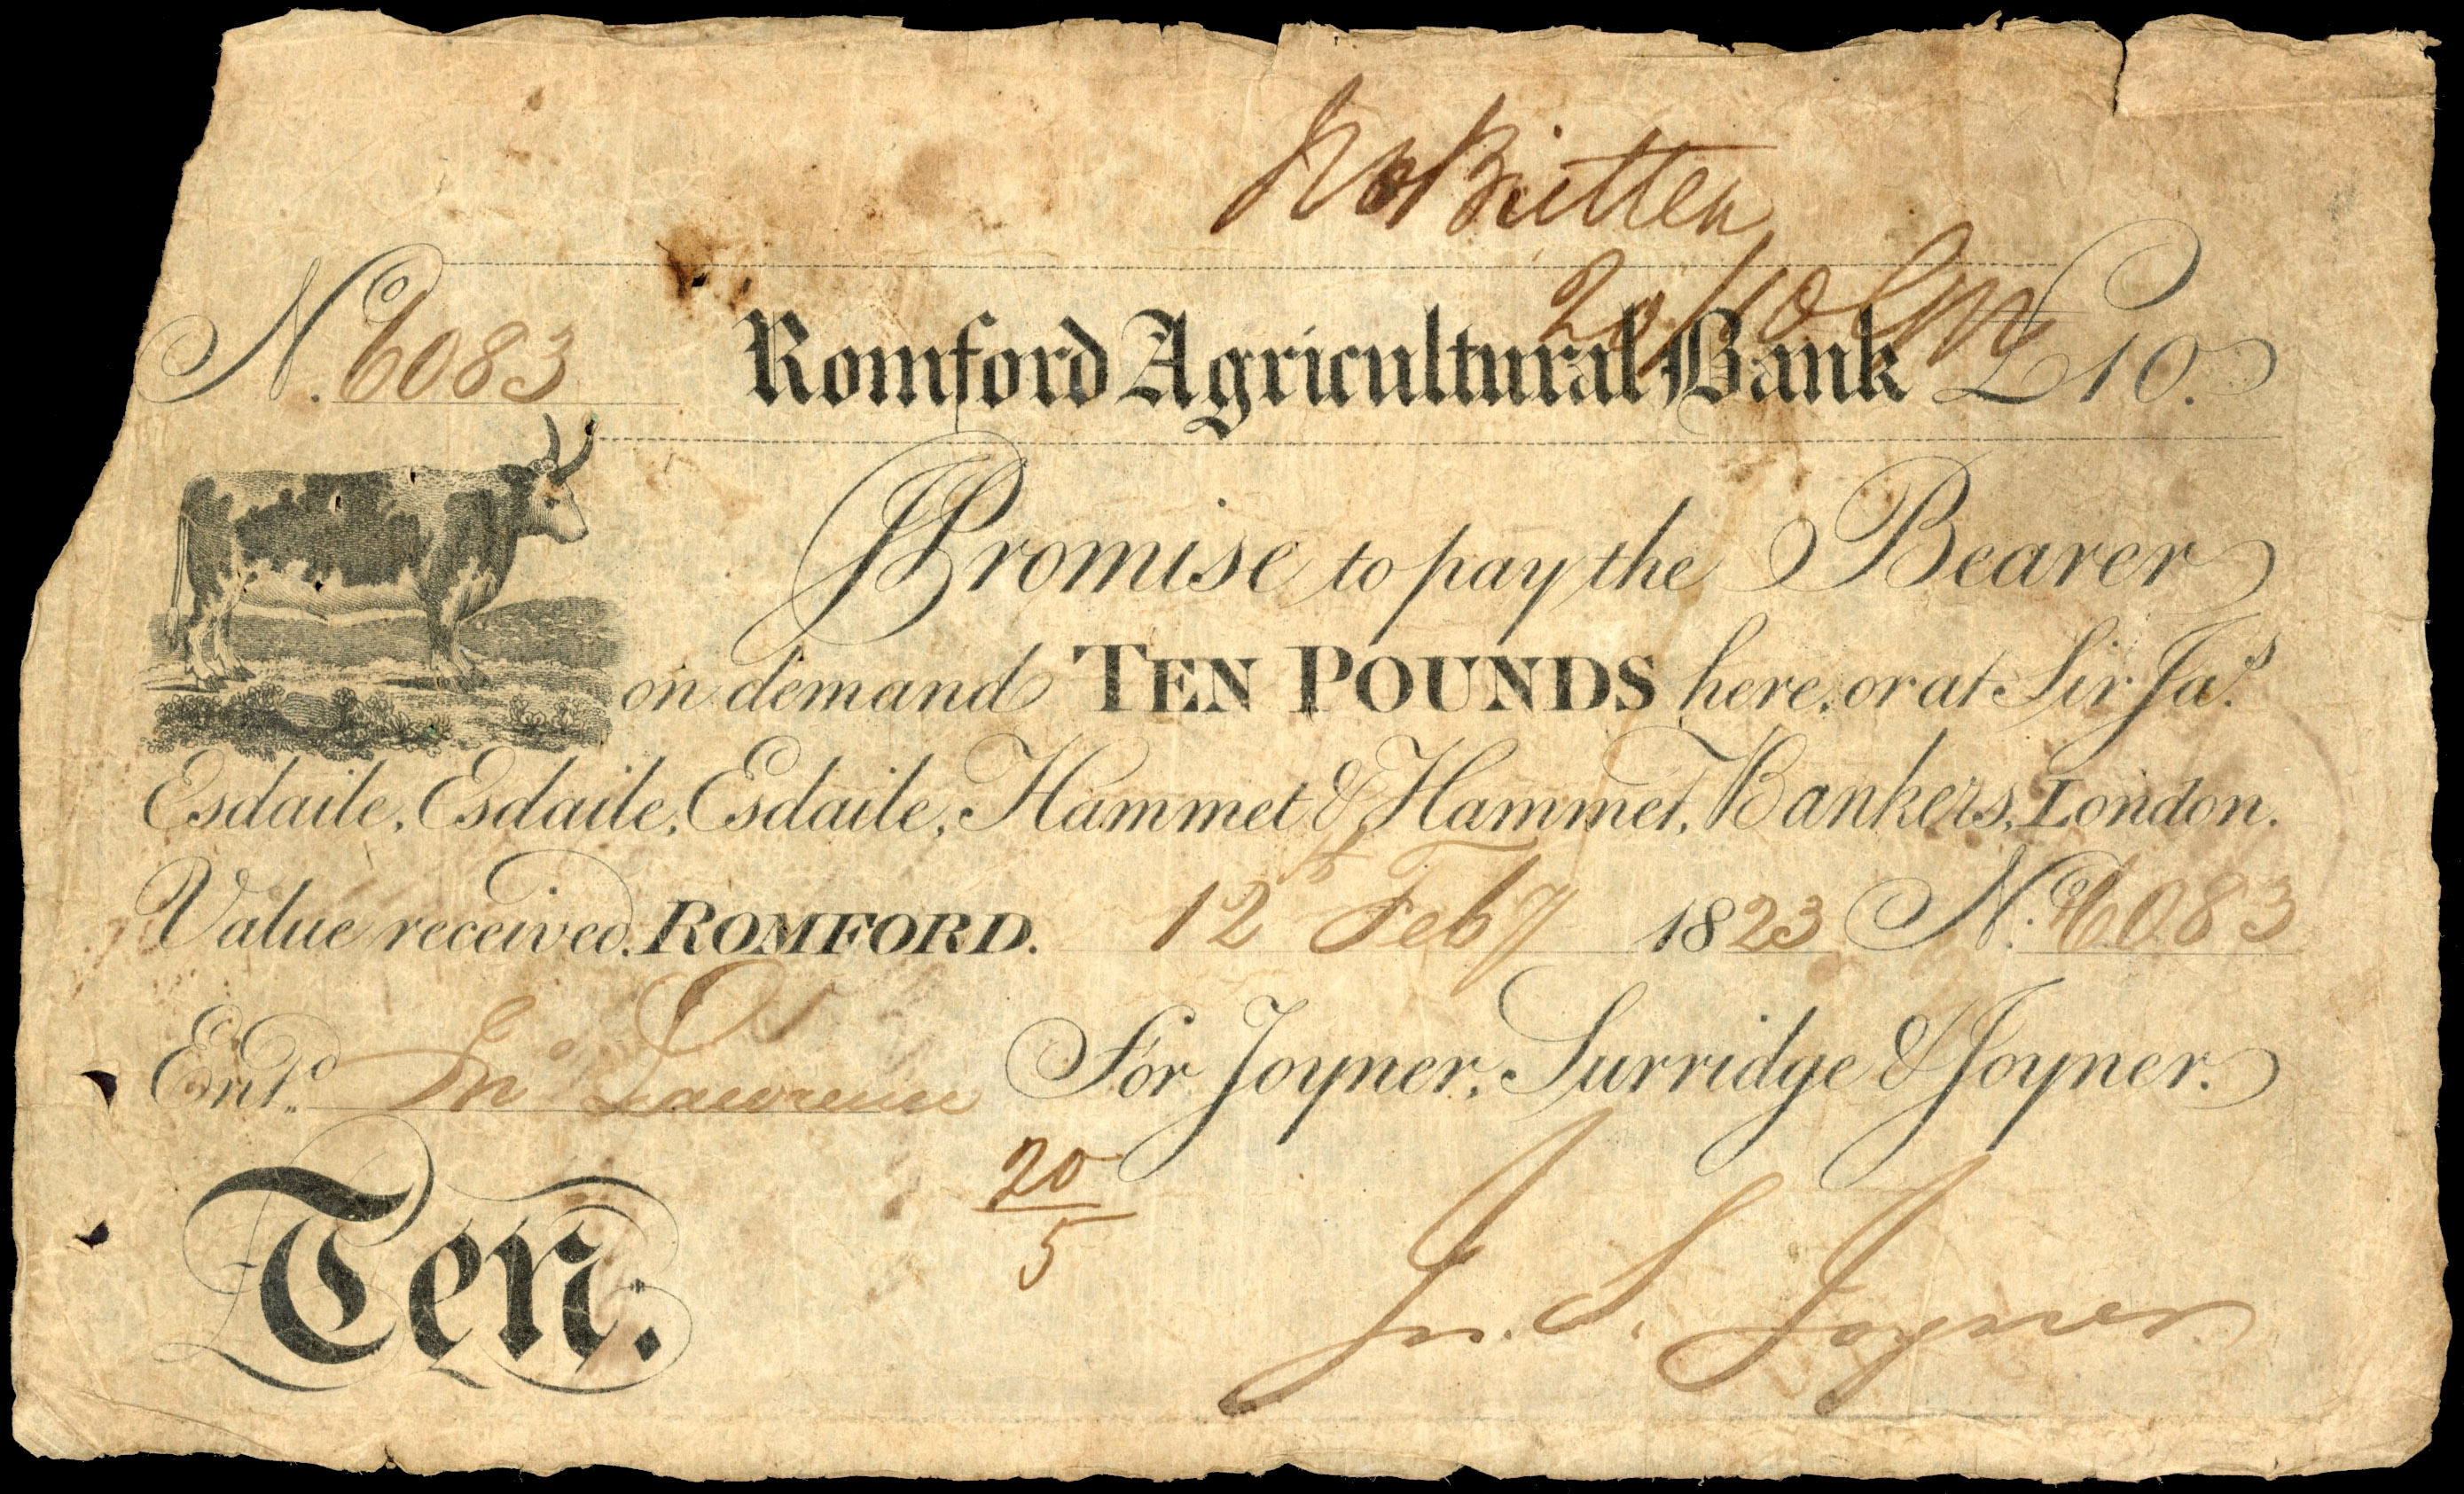 Britten
No. 6083 Romford Agricultural Bank £10.
I Promise to pay the Bearer
on demand TEN POUNDS here, or at Sir Jas.
Esdaile, Esdaile, Esdaile, Hammet & Hammet, Bankers, London.
Value received. ROMFORD. 12th Feby 1823 No. 6083
Entd. Jno Lawrence For Joyner, Surridge & Joyner.
20
5
Ten.
Joyner